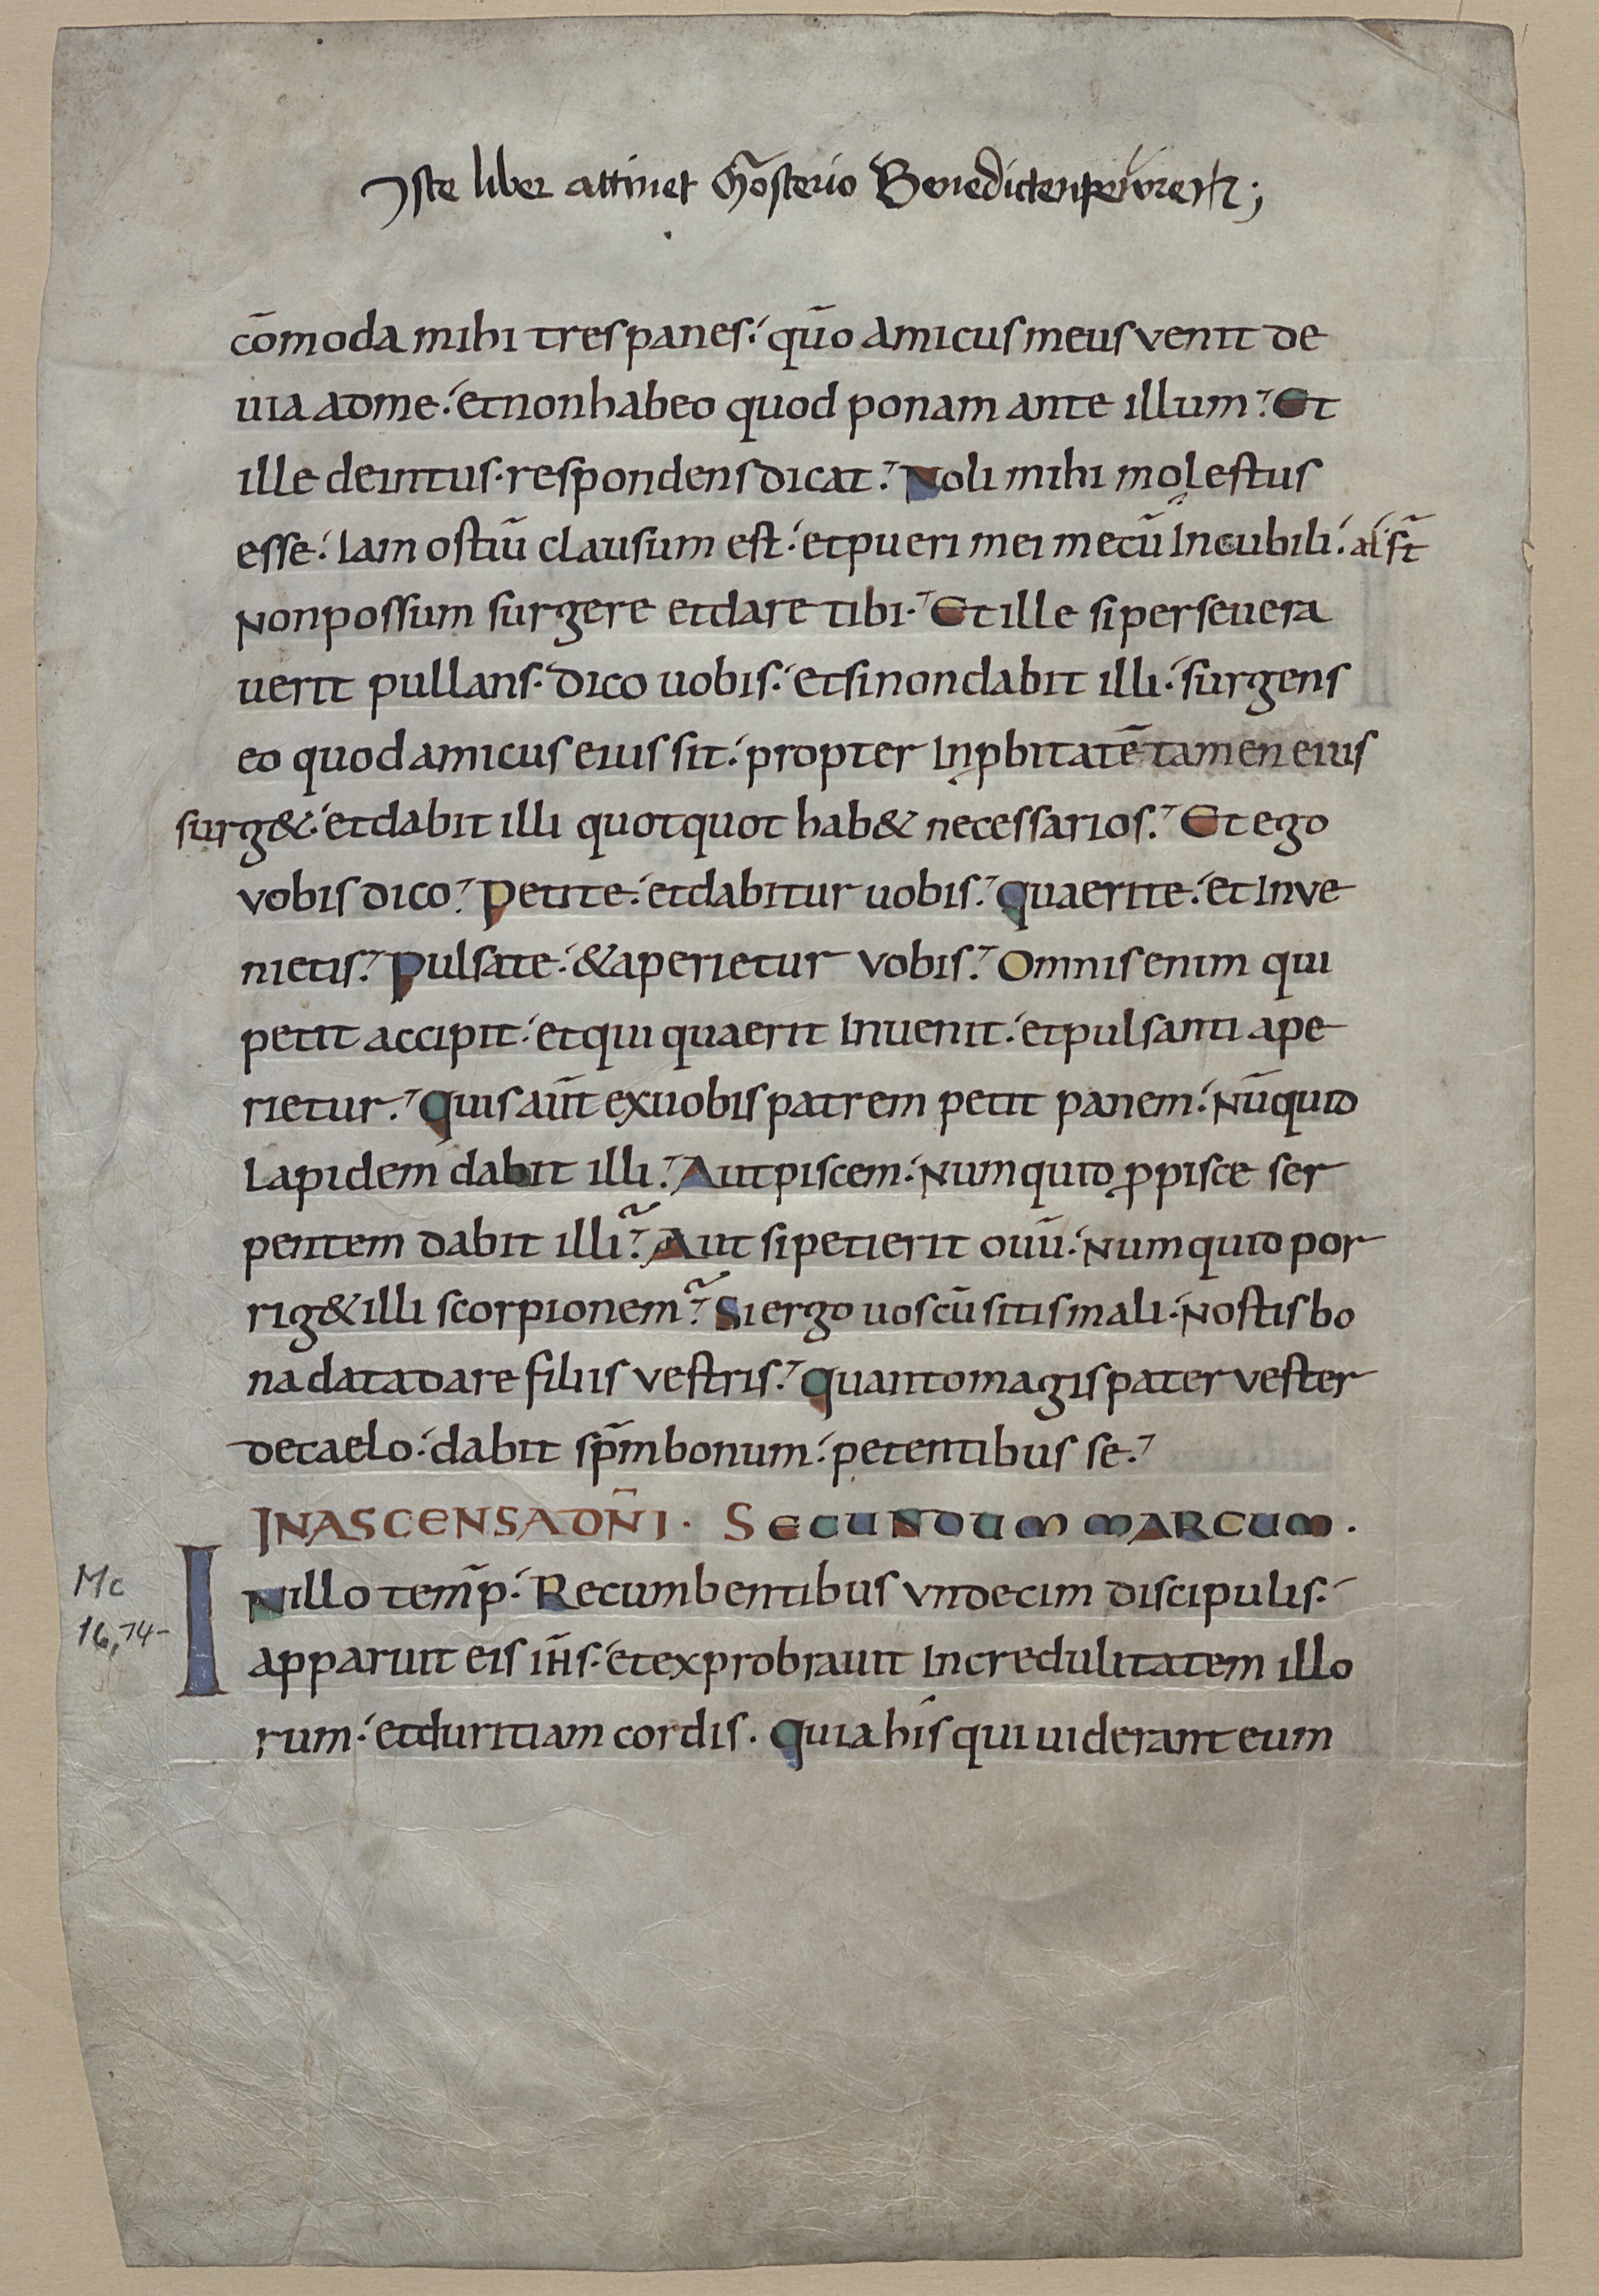 Iste liber attinet Mo̅sterio Benedictenpewren̅;
co̅moda mihi tres panes. quo̅ amicus meus venit de
uia ad me. et non habeo quod ponam ante illum. Et
ille deintus. respondens dicat. Noli mihi molestus
esse. Iam ostiu̅ clausum est. et pueri mei mecu̅ In cubili. al s̅t
Non possum surgere et dare tibi. Et ille si persevera
uerit pullans. dico uobis. et si non dabit illi. surgens
eo quod amicus eius sit. propter Inp̱bitate̅ tamen eius
surg&. et dabit illi quotquot hab& necessarios. Et ego
vobis dico. Petite. et dabitur uobis. Quaerite. et Inve
nietis. Pulsate. & aperietur vobis. Omnis enim qui
petit accipit. et qui quaerit Inuenit. et pulsanti ape
rietur. Quis aut̅ ex uobis patrem petit panem. Nu̅quid
Lapidem dabit illi. Aut piscem. Numquid p̱ pisce ser
pentem dabit illi. Aut si petierit ouu̅. Numquid por
rig& illi scorpionem. Si ergo uos cu̅ sitis mali. Nostis bo
na data dare filiis vestris. Quanto magis pater vester
de caelo. dabit sp̅m bonum. petentibus se.
IN ASCENSA DN̅I. SECUNDUM MARCUM.
Mc
16,14-
IN illo temp̅. Recumbentibus vndecim discipulis.
apparuit eis ih̅s. et exprobrauit Incredulitatem illo
rum. et duritiam cordis. Quia his qui uiderant eum